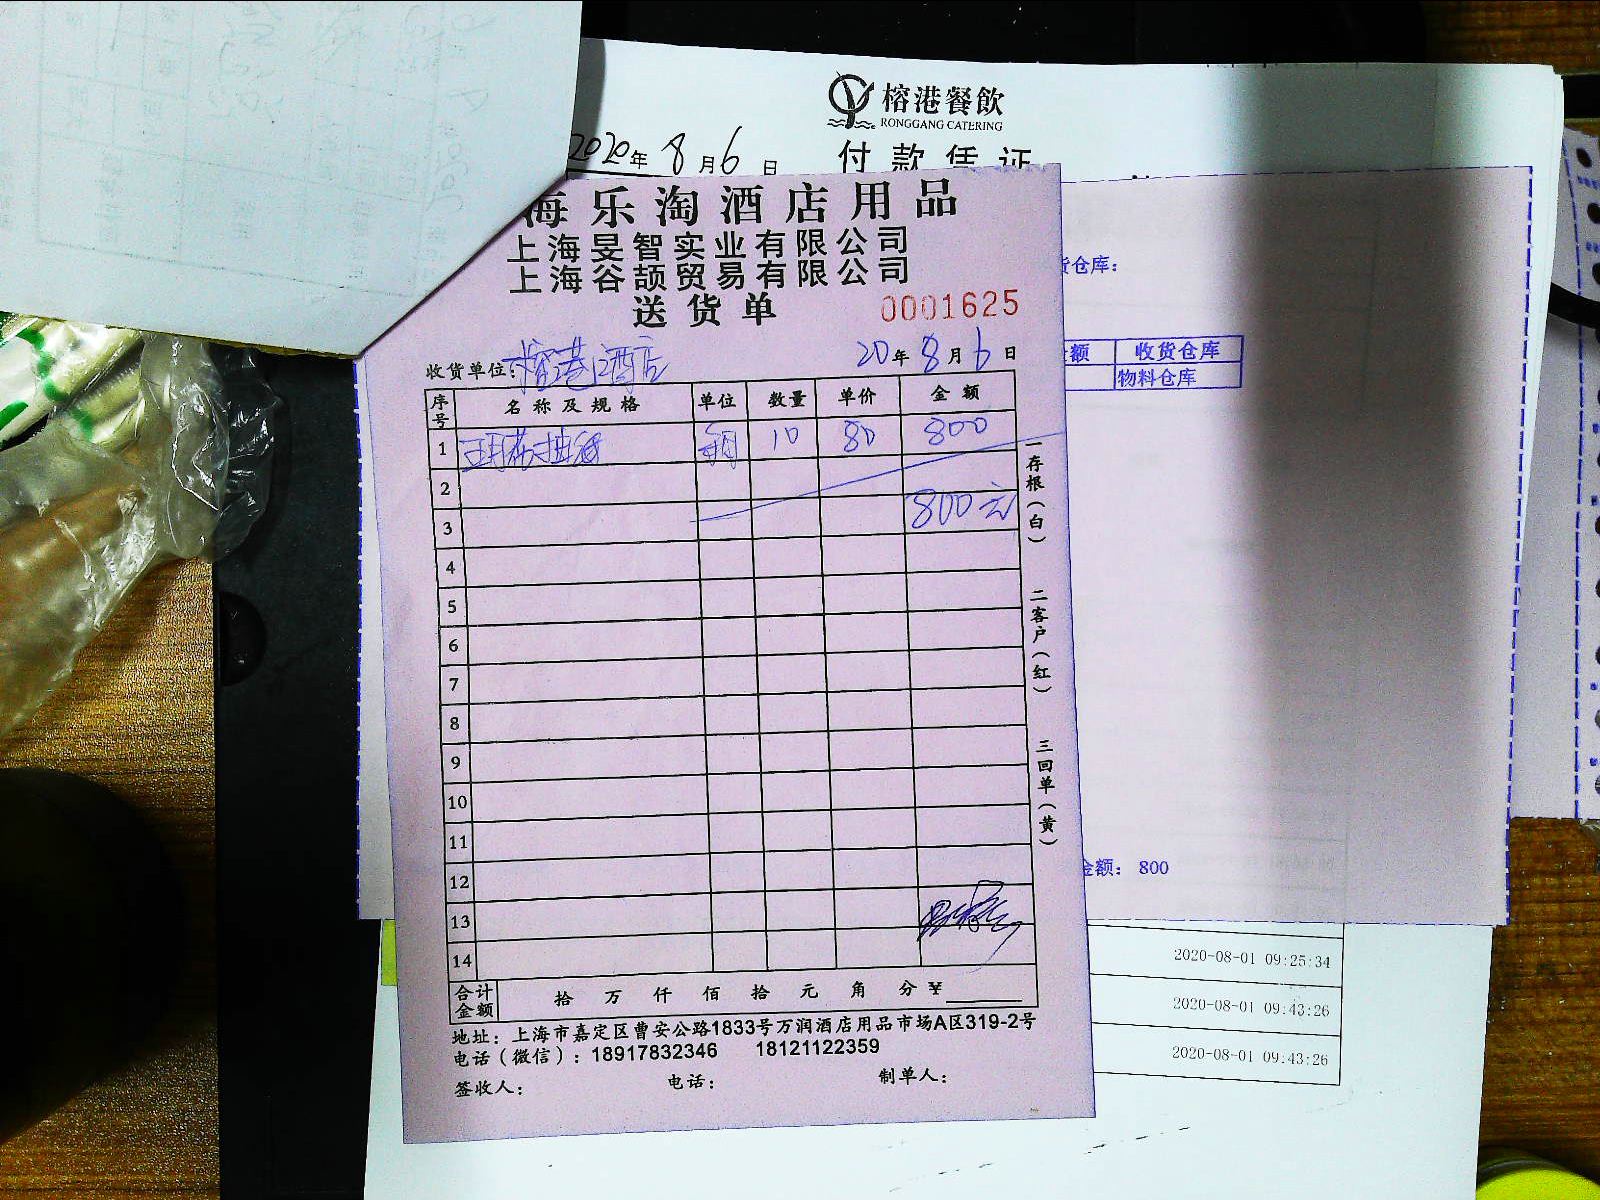 榕港餐飲
RONGGANG CATERING
2020年8月6日
付款凭证
海乐淘酒店用品
上海旻智实业有限公司
上海谷颉贸易有限公司
送货单 0001625
收货单位:榕港酒店 20年8月6日
序号 名称及规格 单位 数量 单价 金额
1 10 80 800
2
3 800元
4
5
6
7
8
9
10
11
12
13
14
合计金额 拾 万 仟 佰 拾 元 角 分 ¥
地址:上海市嘉定区曹安公路1833号万润酒店用品市场A区319-2号
电话(微信):18917832346 18121122359
签收人: 电话: 制单人:
一存根(白) 二客户(红) 三回单(黄)
货仓库:
额 收货仓库
物料仓库
金额: 800
2020-08-01 09:25:34
2020-08-01 09:43:26
2020-08-01 09:43:26